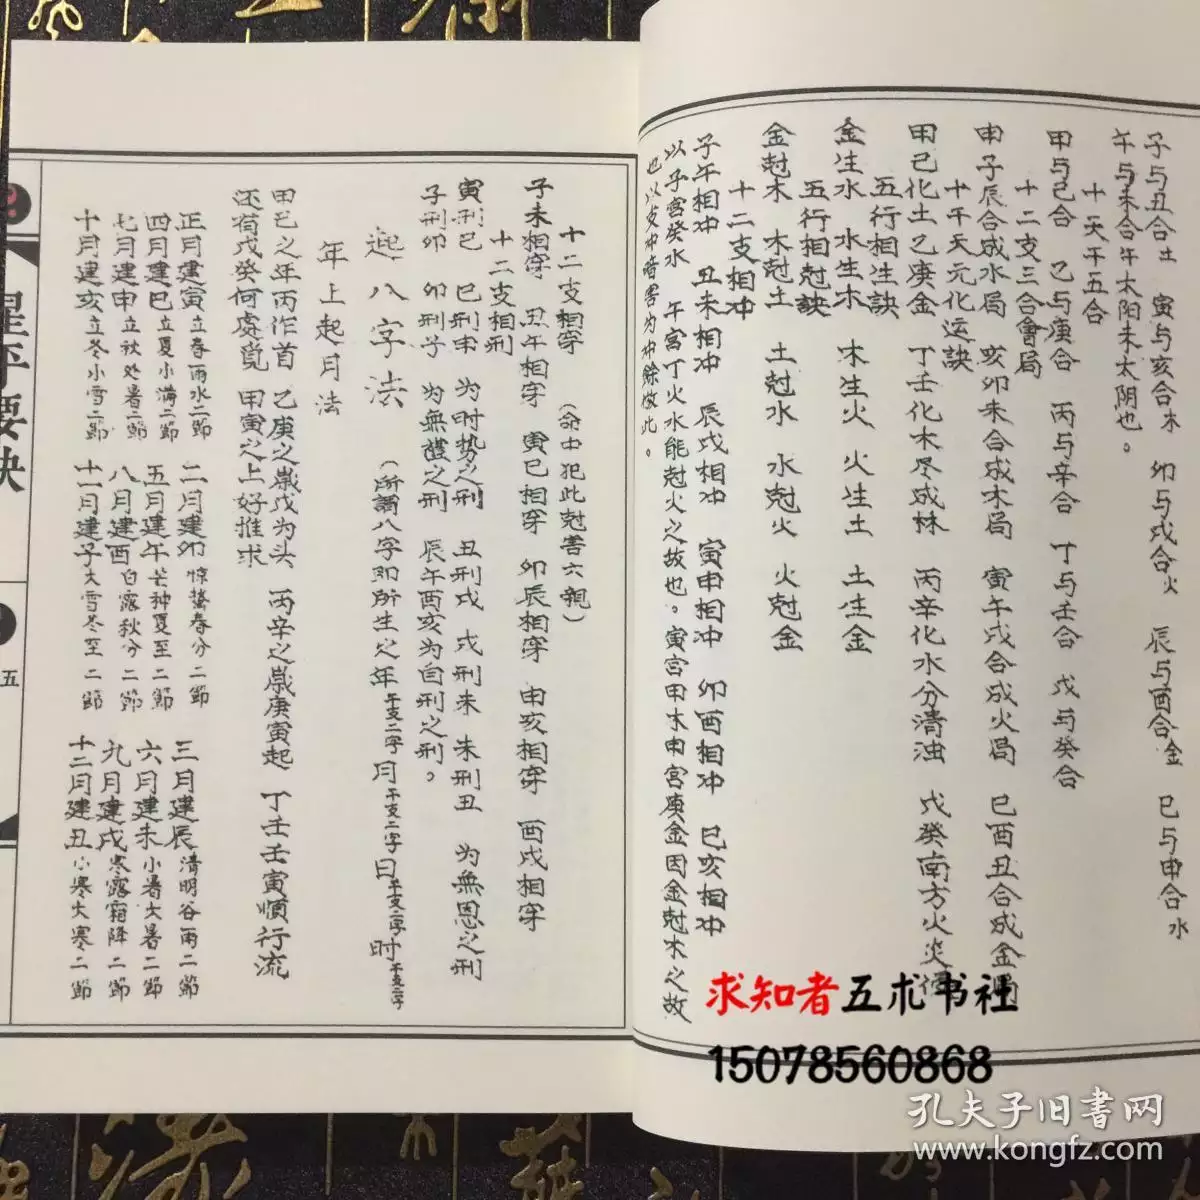 子与丑合土 寅与亥合木 卯与戌合火 辰与酉合金 巳与申合水
午与未合午太阳未太阴也。
十天干五合
甲与己合 乙与庚合 丙与辛合 丁与壬合 戊与癸合
十二支三合會局
申子辰合成水局 亥卯未合成木局 寅午戌合成火局 巳酉丑合成金局
十干天元化运訣
甲己化土乙庚金 丁壬化木尽成林 丙辛化水分清浊 戊癸南方火炎
五行相生訣
金生水 水生木 木生火 火生土 土生金
五行相尅訣
金尅木 木尅土 土尅水 水尅火 火尅金
十二支相冲
子午相冲 丑未相冲 辰戌相冲 寅申相冲 卯酉相冲 巳亥相冲
以子宮癸水 午宮丁火水能尅火之故也。寅宫甲木申宮庚金因金尅木之故
也以支冲暗害为冲餘倣此。
十二支相穿 （命中犯此尅害六親）
子未相穿 丑午相穿 寅巳相穿 卯辰相穿 申亥相穿 酉戌相穿
十二支相刑
寅刑巳 巳刑申 为时势之刑 丑刑戌 戌刑未 未刑丑 为無恩之刑
子刑卯 卯刑子 为無禮之刑 辰午酉亥为自刑之刑。
起八字法 （所謂八字即所生之年干支二字月干支二字日干支二字时干支二字
年上起月法
甲己之年丙作首 乙庚之歲戊为头 丙辛之歲庚寅起 丁壬壬寅順行流
还有戊癸何處覓 甲寅之上好推求
正月建寅立春雨水二節 二月建卯惊蟄春分二節 三月建辰清明谷雨二節
四月建巳立夏小满二節 五月建午芒种夏至二節 六月建未小暑大暑二節
七月建申立秋处暑二節 八月建酉白露秋分二節 九月建戌寒露霜降二節
十月建亥立冬小雪二節 十一月建子大雪冬至二節 十二月建丑小寒大寒二節
星平要訣
五
求知者五术书社
15078560868
孔夫子旧書网
www.kongfz.com